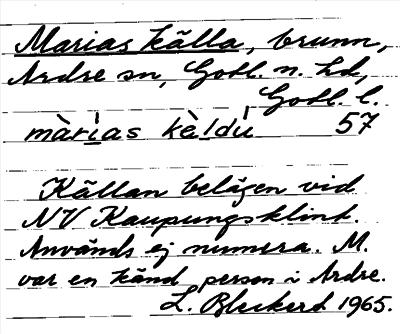 Marias källa, brunn,
Ardre sn, Gotl. n. hd,
Gotl. l.
màri̲as kè̲ldù 57
Källan belägen vid
NV Kaupungsklint.
Används ej numera. M.
var en känd person i Ardre.
L. Bleckerd 1965.